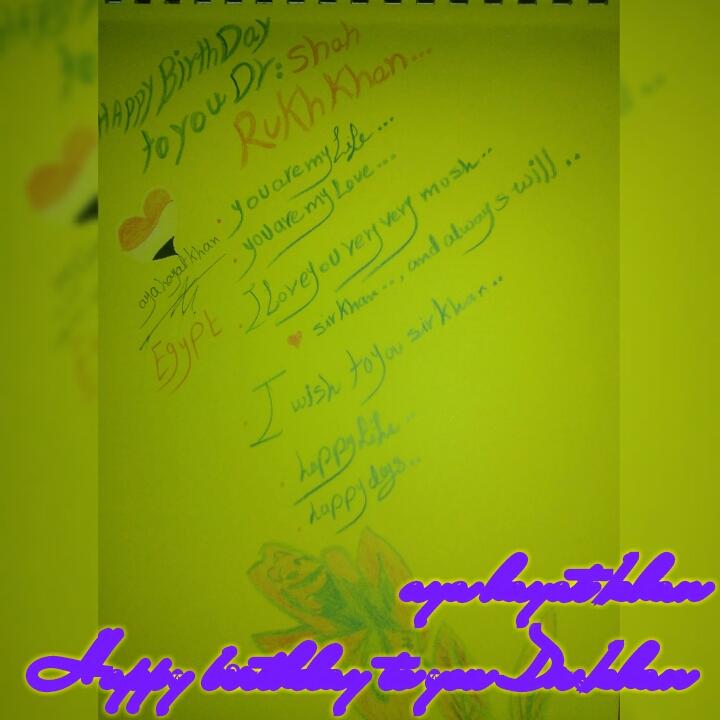 HAPPY BirthDay
to you Dr: Shah
Rukh Khan...
you are my Life...
you are my Love...
I Love you very very mush..
sirkhan.., and always will..
ayahayatkhan
Egypt
I wish to you sir khan..
happy life..
happy days..
ayahayatkhan
Happy birthday to you Dr.khan